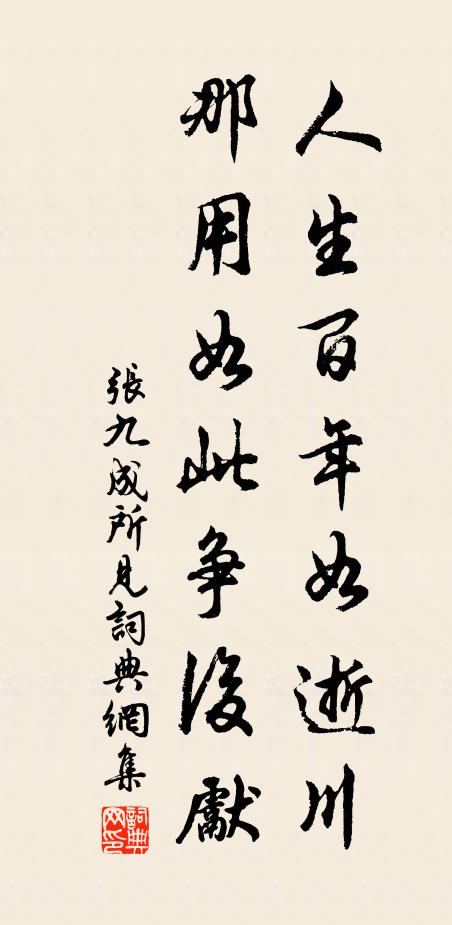 人生百年如逝川
那用如此争後獻
張九成所見詞典網集
詞典网印